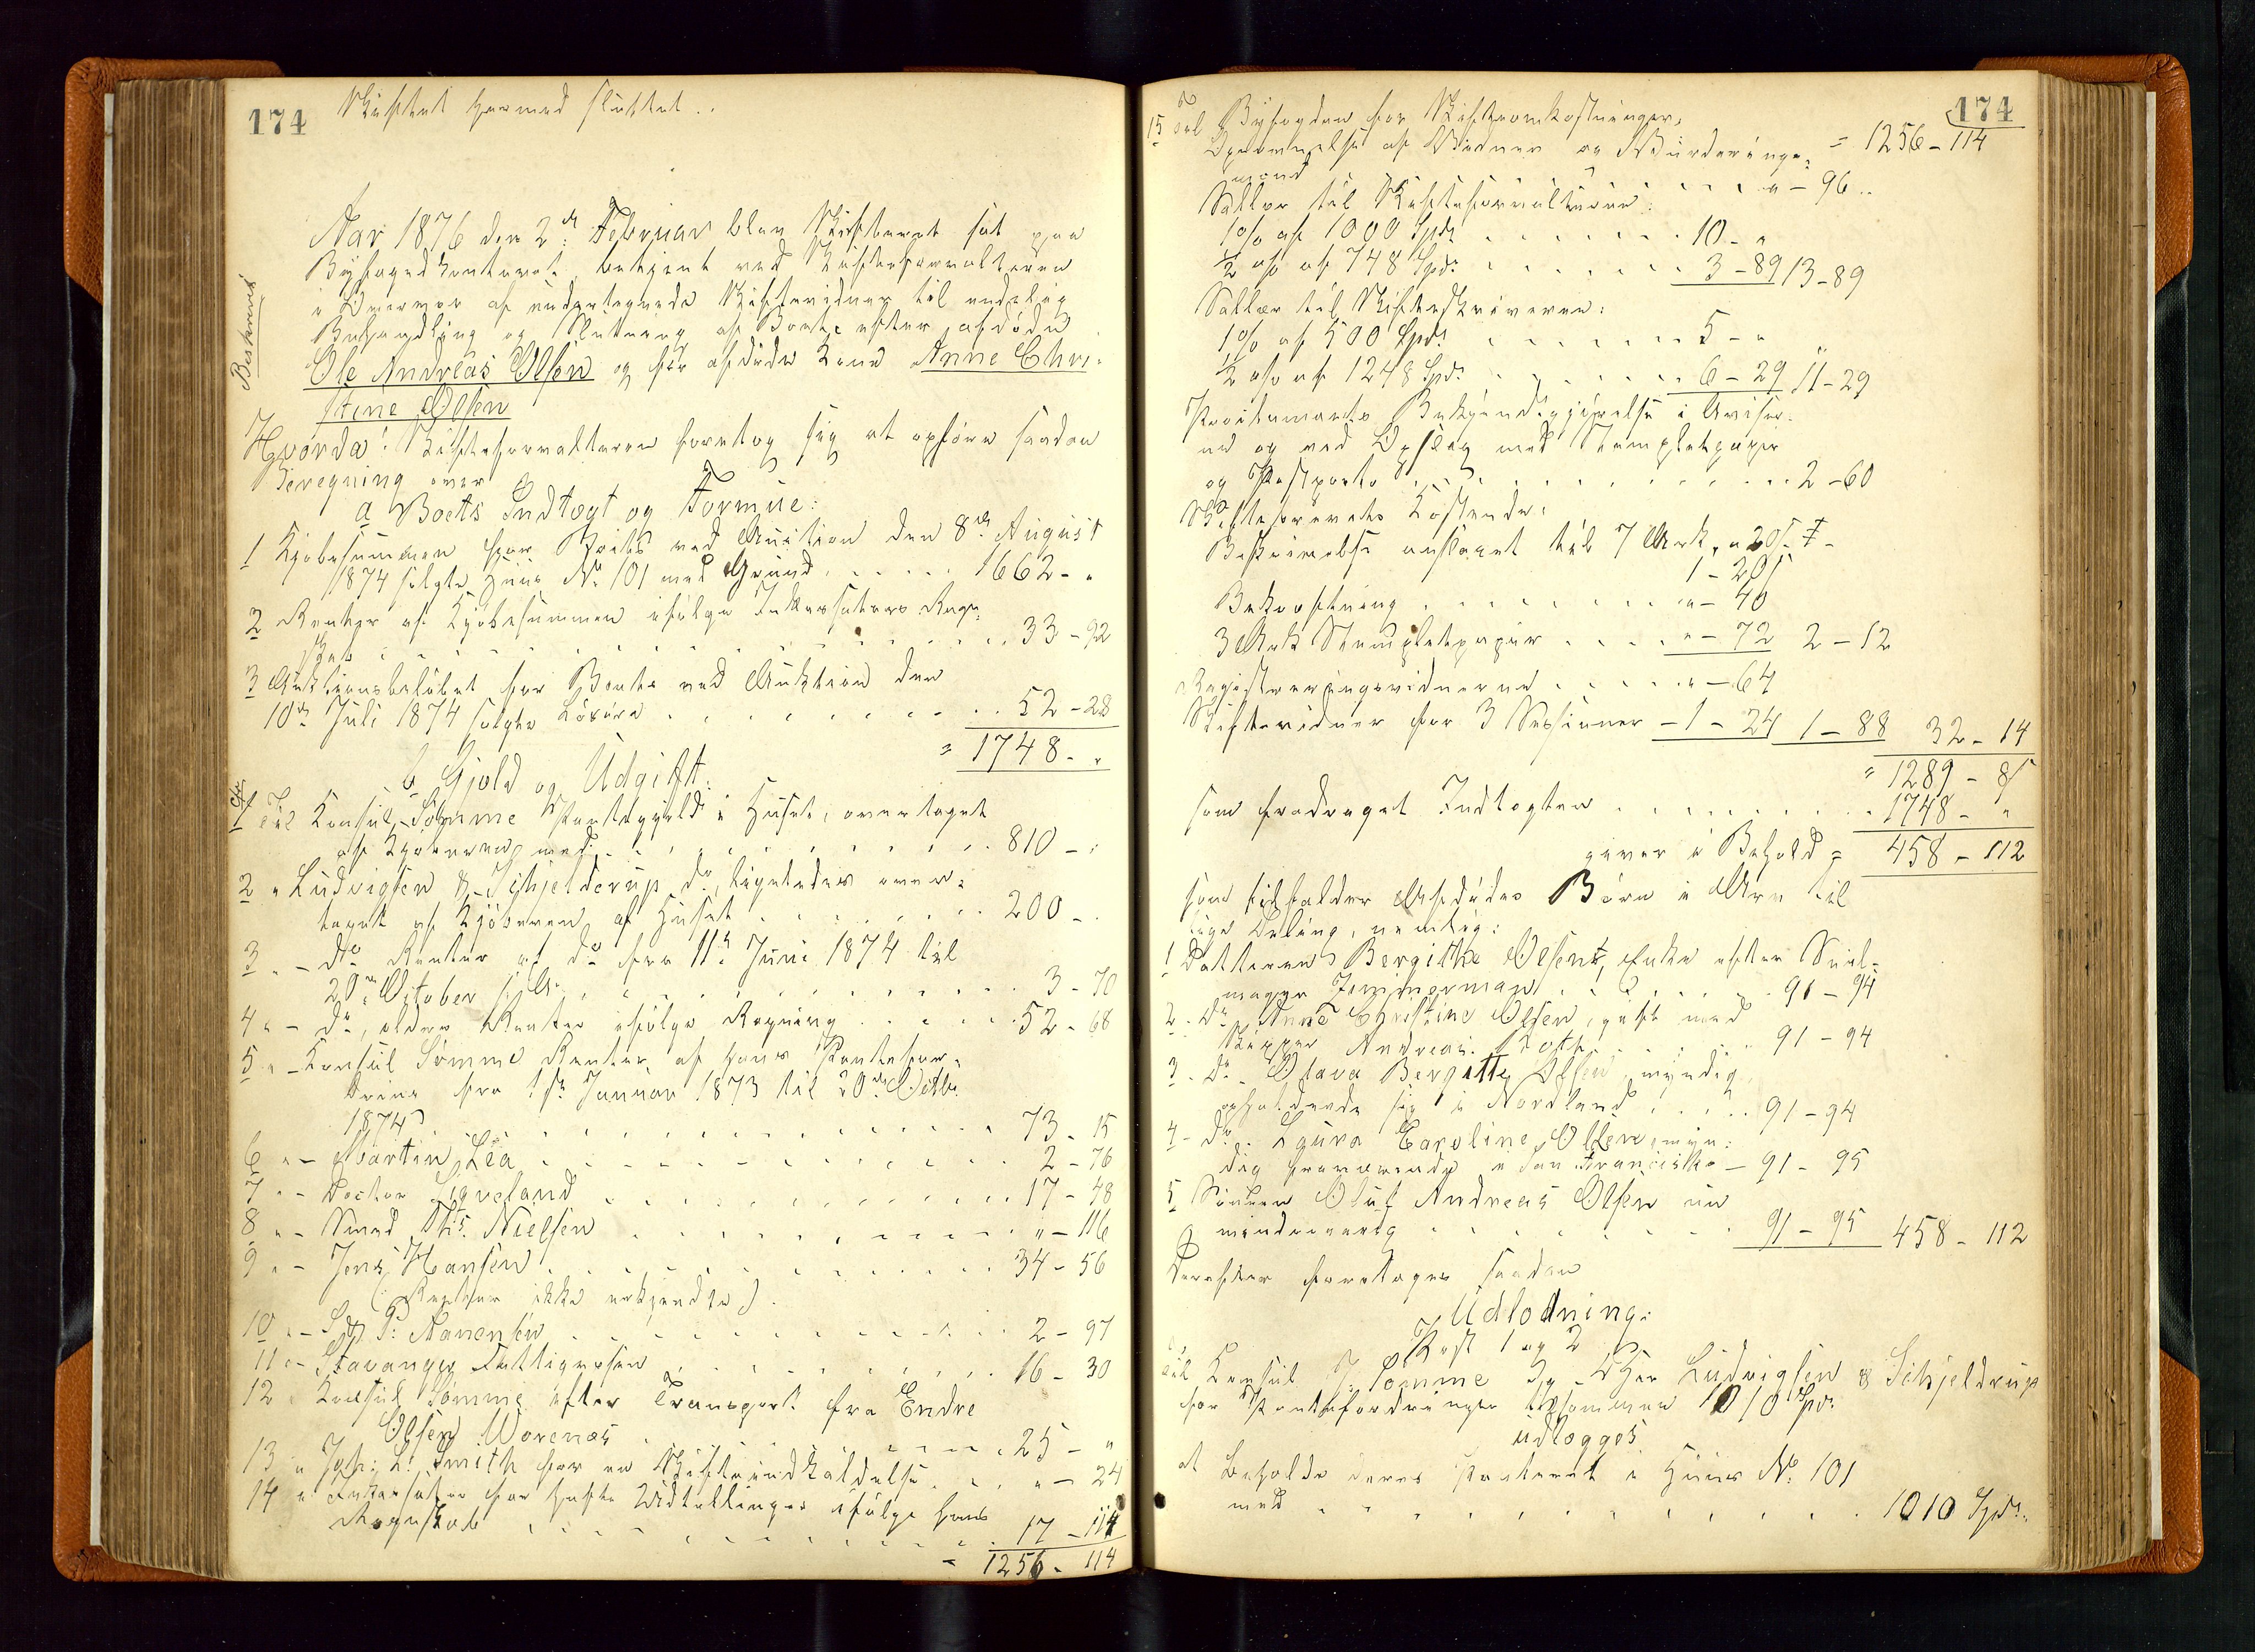 174
Skiftet hermed sluttet..
Aar 1876 den 2den Februar blev Skifteret sat paa
Byfogedkontoret betjent ved Skifteforvalteren
i Overvær af undertegnede Skiftevidner til endelig
Behandling og Slutning af Boet efter afdøde
Ole Andreas Olsen og før afdøde Kone Anne Chri-
stine Olsen
Beskreven
Hvorda: Skifteforvalteren foretog sig at opføre saadan
Beregning over
a Boets Indtægt og Formue:
1 Kjøbesummen for Boets ved Auction den 8de August
1874 solgte Huus No 101 med Grund . . . . . 1662 - "
2 Renter af Kjøbesummen ifølge Inkassators Regn-
skab . . . . . 33 - 92
3 Auktionsbeløbet for Boets ved Auktion den
10de Juli 1874 solgte Løsøre . . . . . 52 - 28
= 1748 - "
b Gjæld og Udgift:
1 Til Konsul Sømme Pantegjæld i Huset, overtaget
af Kjøberen med . . . . . 810 - "
2 " Ludvigsen & Schjelderup do, ligeledes over-
taget af Kjøberen af Huset . . . . . 200 - "
3 " - do Renter af do fra 11te Juni 1874 til
20de October s. A. . . . . . 3 - 70
4 " - do, ældre Renter ifølge Regning . . . . . 52 - 68
5 " - Konsul Sømme Renter af hans Pantefor-
dring fra 1ste Januar 1873 til 20de Octbr.
1874 . . . . . 73 - 15
6 " - Martin Lea . . . . . 2 - 76
7 " - Doctor Kaveland . . . . . 17 - 48
8 " - Smed Ths. Nielsen . . . . . " - 116
9 " - Jens Hansen . . . . . 34 - 56
(: Renter ikke erkjendte).
10 " - P: Nanensen . . . . . 2 - 97
11 " - Stavanger Fattigvæsen . . . . . 16 - 30
12 " Konsul Sømme efter Transport fra Endre
Olsen Worenæs . . . . . 25 - "
13 " Joh: L. Smith for en Skifteindkaldelse . . " - 24
14 " Inkassator for hafte Udtællinger ifølge hans
Regnskab . . . . . 17 - 114
= 1256 - 114
174
= 1256 - 114
15 Til Byfogden for Skifteomkostninger,
Opnævnelse af Vidner og Vurderings-
mænd . . . . . " - 96 ..
Sallær til Skifteforvalteren:
1% af 1000 Spd. . . . . . 10 - "
1/2 % af 748 Spd. . . . . . 3 - 89 13 - 89
Sallær til Skifteskriveren:
1% af 500 Spd. . . . . . 5 - "
1/2 % af 1248 Spd. . . . . . 6 - 29 11 - 29
Proclamaets Bekjendtgjørelse i Aviser-
ne og ved Opslag med Stemplet papir
og Postporto . . . . . 2 - 60
Skiftebrevets Kostende:
Beskrivelse anslaaet til 7 Ark a 20 s
1 - 20
Bekræftning . . . . . " - 40
3 Ark Stempletpapir . . . . " - 72 2 - 12
Registreringsvidnerne . . . . . " - 64
Skiftevidner for 3 Sessioner - 1 - 24 1 - 88 32 - 14
= 1289 - 8
som fradraget Indtægten . . . . . 1748 - "
giver i Behold = 458 - 112
som tilfalder Afdødes Børn i Arv til
lige Deling, nemlig:
1 Datteren Bergithe Olsen, Enke efter Seil-
mager Zimmerman . . . . . 91 - 94
2 - do Anne Christine Olsen, gift med
Skipper Andreas Roth . . . . . 91 - 94
3 - do - Olava Bergitte Olsen, myndig,
opholdende sig i Nordland . . . . 91 - 94
4 - do - Laura Caroline Olsen, myn-
dig fraværende i San Francisko - 91 - 95
5 Sønnen Oluf Andreas Olsen en
mindreaarig . . . . . 91 - 95 458 - 112
Derefter foretages saadan
Udlodning:
Post 1 og 2
Til Konsul J. Sømme og DHer Ludvigsen & Schjeldrup
for Pantefordringer tilsammen 1010 Spd.
udlægges
at beholde deres Panteret i Huus No 101
med . . . . . 1010 Spd.